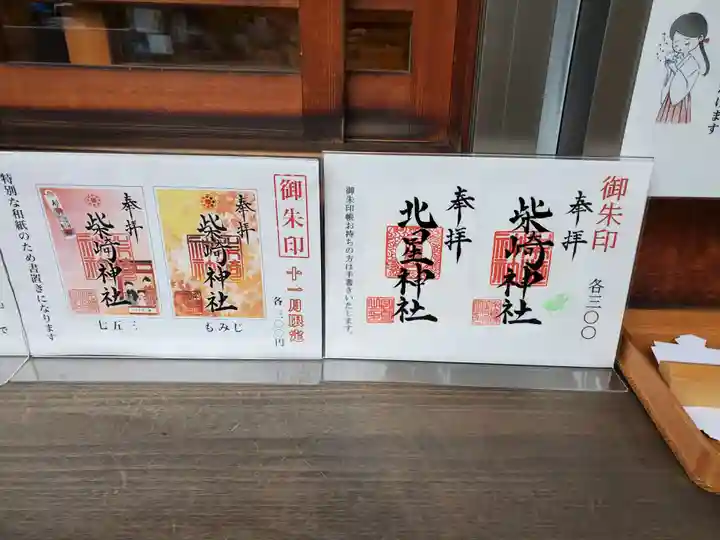 御朱印
各三〇〇
奉拝
柴崎神社
奉拝
北星神社
御朱印帳お持ちの方は手書きいたします。
御朱印
十一月限定
各三〇〇円
奉拝
柴崎神社
もみじ
奉拝
柴崎神社
七五三
特別な和紙のため書置きになります
ます
で